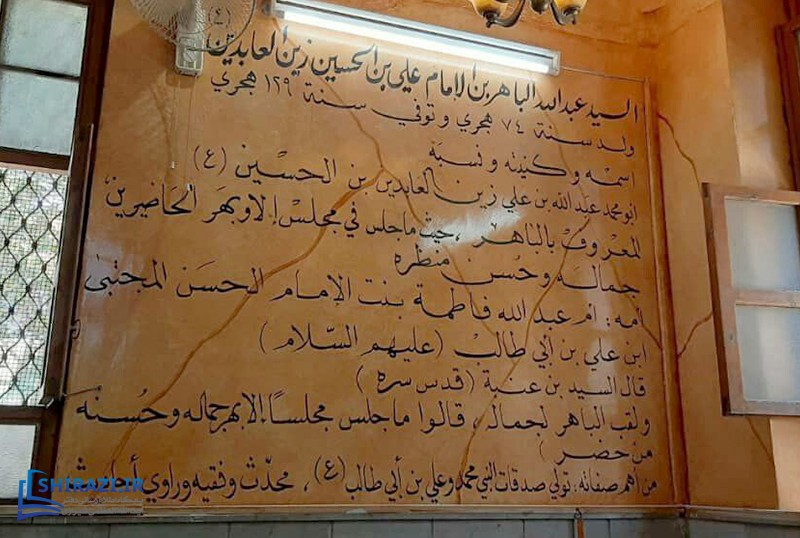 السيد عبد الله الباهر بن الإمام علي بن الحسين زين العابدين (ع)
ولد سنة ٧٤ هجري وتوفي سنة ١٢٩ هجري
اسمه وكنيته ونسبه
ابو محمد عبد الله بن علي زين العابدين بن الحسين (ع)
المعروف بالباهر، حيث ما جلس في مجلس إلا وبهر الحاضرين
جماله وحسن منظره
امه: ام عبد الله فاطمة بنت الإمام الحسن المجتبى
ابن علي بن أبي طالب (عليهم السلام)
قال السيد بن عنبة (قدس سره)
ولقب الباهر لجماله، قالوا ما جلس مجلساً إلا بهر جماله وحسنه
من حضر)
من أهم صفاته: تولي صدقات النبي محمد وعلي بن أبي طالب (ع)، محدّث وفقيه وراوي
SHIRAZI.IR